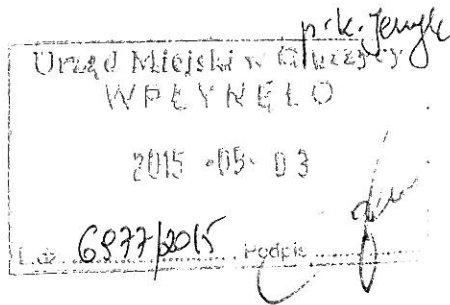 p. k.
Urząd Miejski w Głuszycy
WPŁYNĘŁO
2015 -05- 03
L.dz. 6977/2015 Podpis